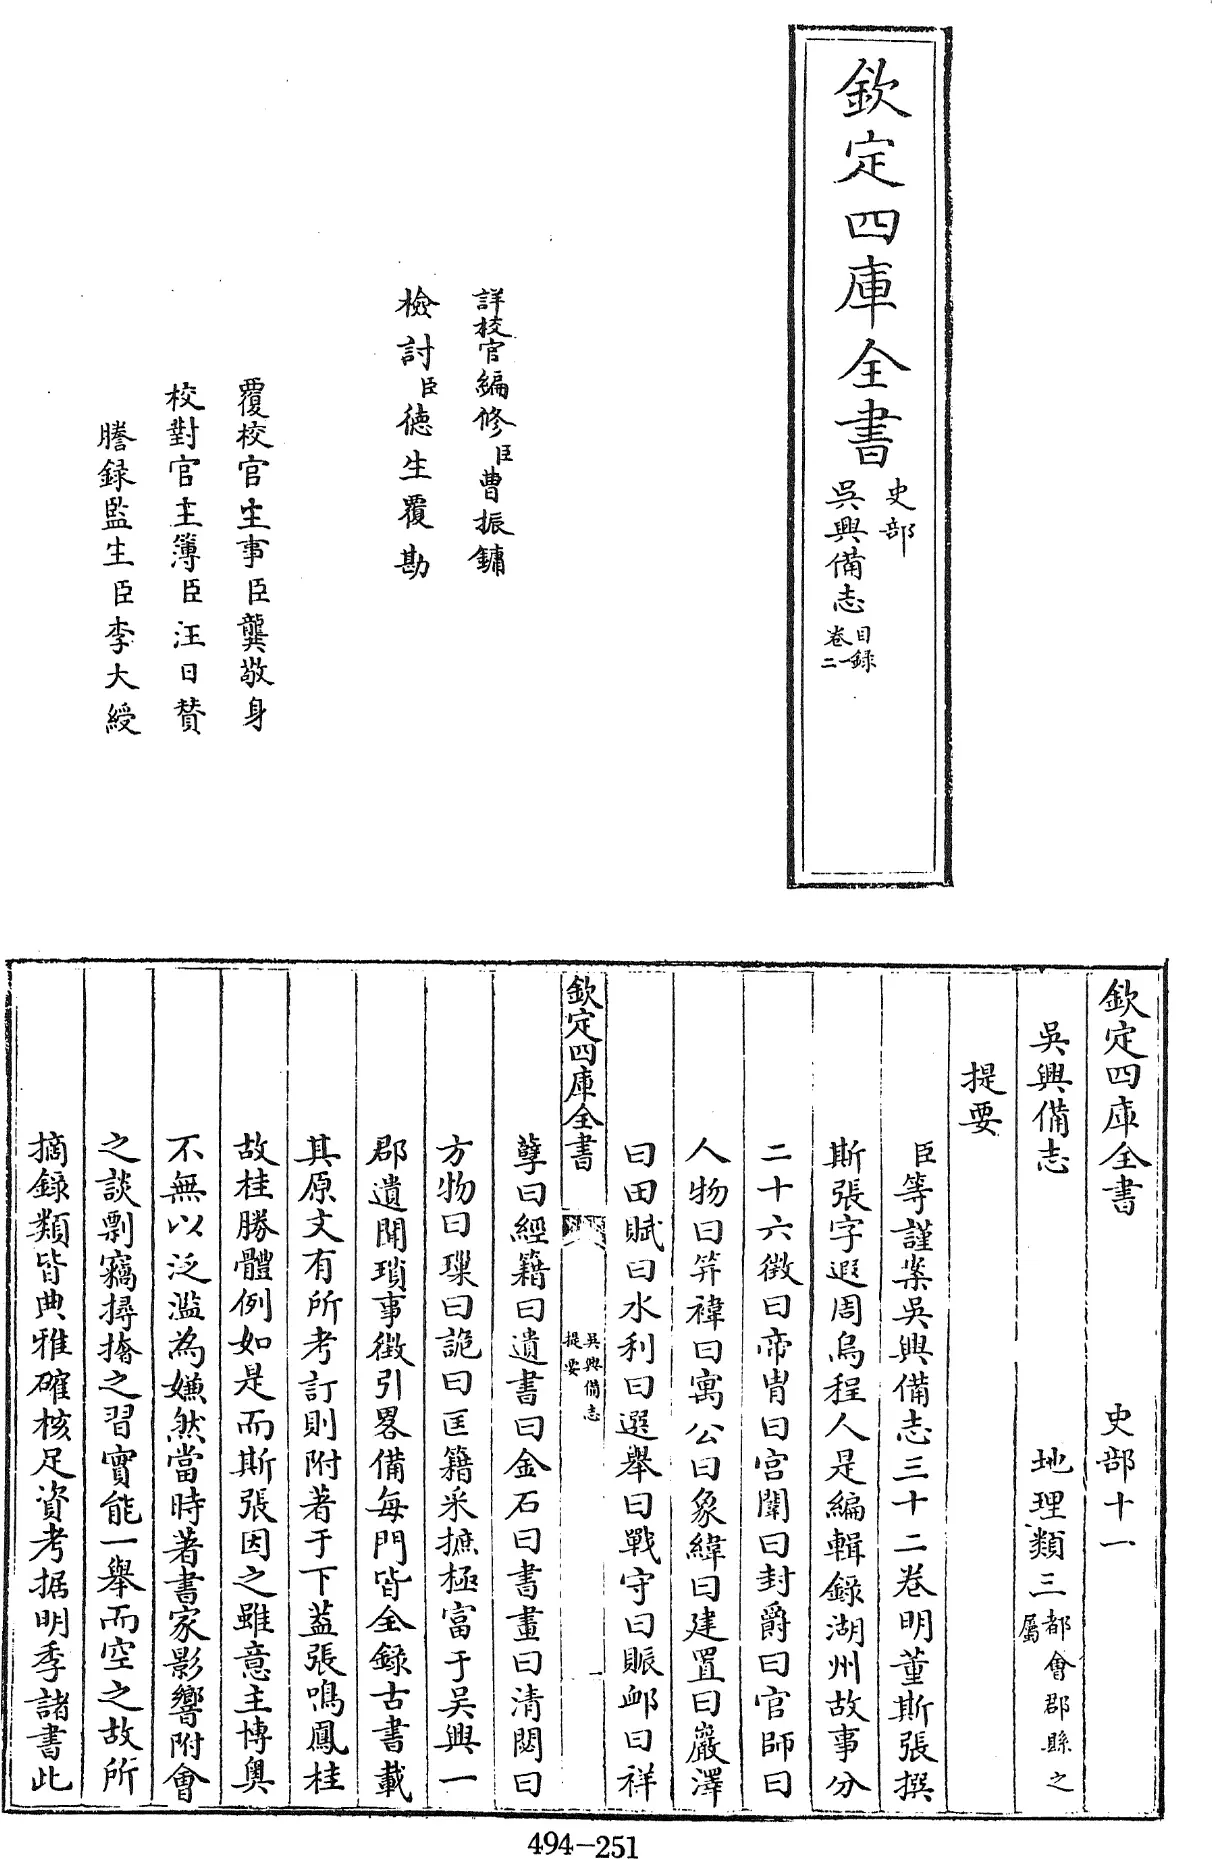 欽定四庫全書
史部
吳興備志
目録
卷一
二
詳校官編修臣曹振鏞
檢討臣德生覆勘
覆校官主事臣龔敬身
校對官主簿臣汪日贊
謄録監生臣李大綬
欽定四庫全書 史部十一
吳興備志 地理類三都會郡縣之屬
提要
臣等謹案吳興備志三十二卷明董斯張撰
斯張字遐周烏程人是編輯錄湖州故事分
二十六徵曰帝胄曰宫闈曰封爵曰官師曰
人物曰笄褘曰寓公曰象緯曰建置曰巖澤
曰田賦曰水利曰選舉曰戰守曰賑䘏曰祥
欽定四庫全書
吳興備志
提要
一
孽曰經籍曰遺書曰金石曰書畫曰清閟曰
方物曰璅曰詭曰匡籍采摭極富于吳興一
郡遺聞瑣事徵引畧備每門皆全録古書載
其原文有所考訂則附著于下葢張鳴鳳桂
故桂勝體例如是而斯張因之雖意主博奥
不無以泛濫為嫌然當時著書家影響附會
之談剽竊撏撦之習實能一舉而空之故所
摘録類皆典雅確核足資考据明季諸書此
494-251